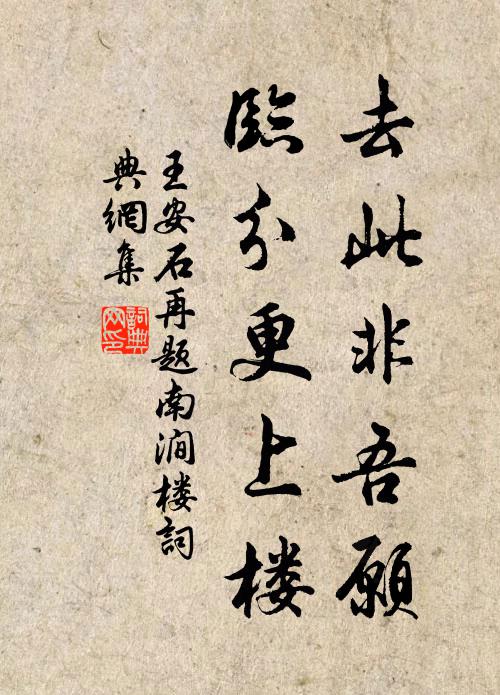 去此非吾願
臨分更上楼
王安石再题南澗楼詞
典網集
詞典
网印